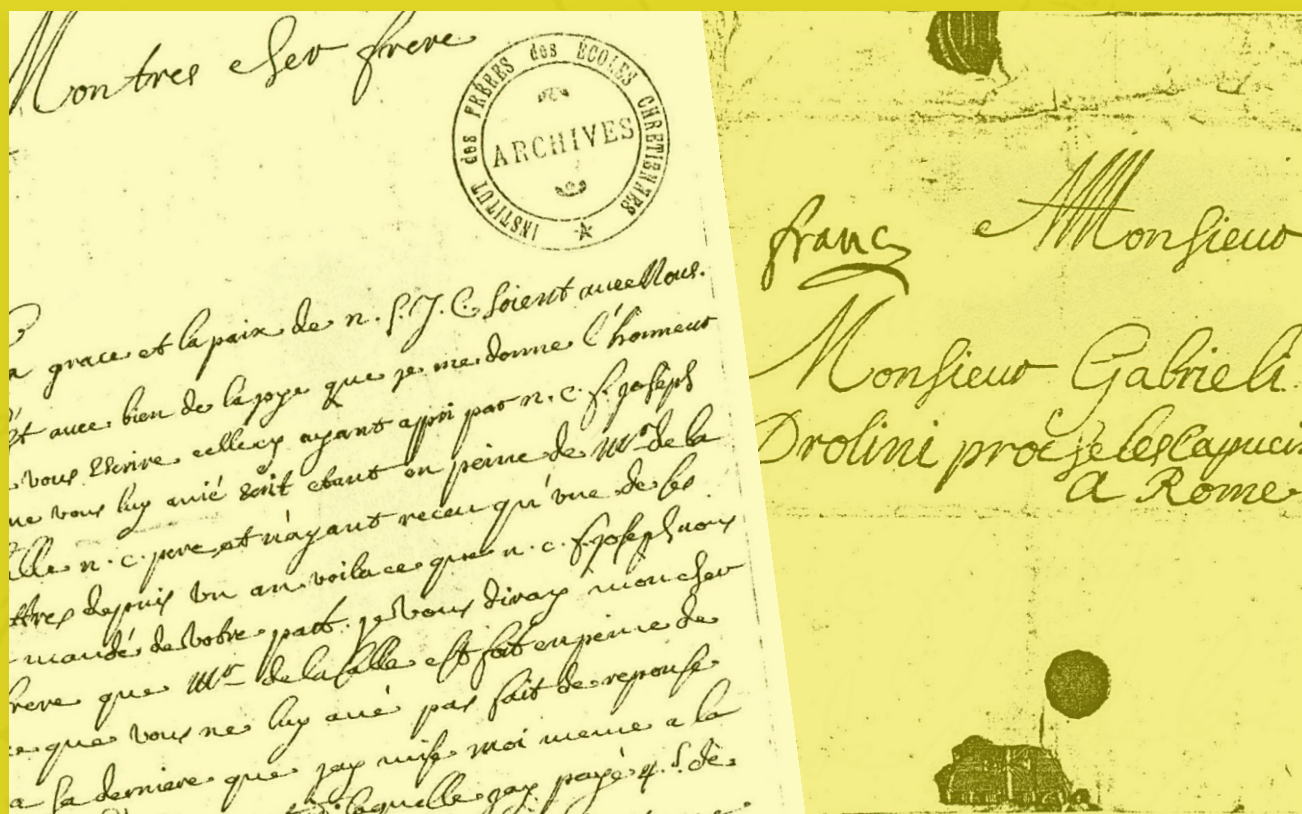 Mon tres cher frere
INSTITUT des FRÈRES des ÉCOLES CHRETIENNES
ARCHIVES
a grace et la paix de n. S. J. C. soient avec Nous.
t avec bien de la joye que je me donne l'honneur
vous Escrire celle cy ayant apri par n. c. f. joseph
ue vous luy avié Ecrit etant en peine de Mr de la
lle n. c. pere et n'ayant receu qu'une de ses
ttres depuis un an voila ce que n. c. f. joseph nous
mandé de votre part. je vous diray mon cher
rere que Mr de la salle est fort en peine de
ce que vous ne luy avié pas fait de reponse
a sa derniere que jay mise moi meme a la
laquelle jay payé 4. s. de
franc
A Monsieur
Monsieur Gabrieli
Drolini proche les Capucin
A Rome